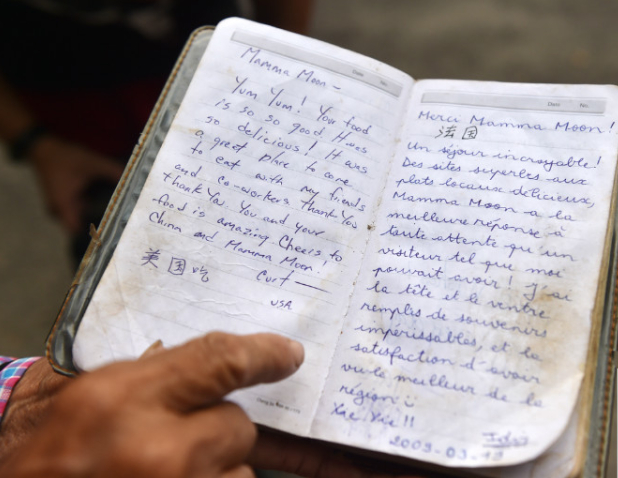 Date No.
Mamma Moon –
Yum Yum! You food
is so so good It was
so delicious! It was
a great place to come
to eat with my friends
and co-workers Thank You
thank You. You and your
food is amazing Cheers to
China and Mamma Moon!
美国吃 Curt
USA
Date No.
Merci Mamma Moon!
法国
Un séjour incroyable!
Des sites superbes aux
plats locaux délicieux,
Mamma Moon a la
meilleure réponse à
toute attente qu'un
visiteur tel que moi
pouvait avoir! J'ai
la tête et le ventre
remplis de souvenirs
impérissables, et la
satisfaction d'avoir
vu le meilleur de la
région
Xie Xie !!